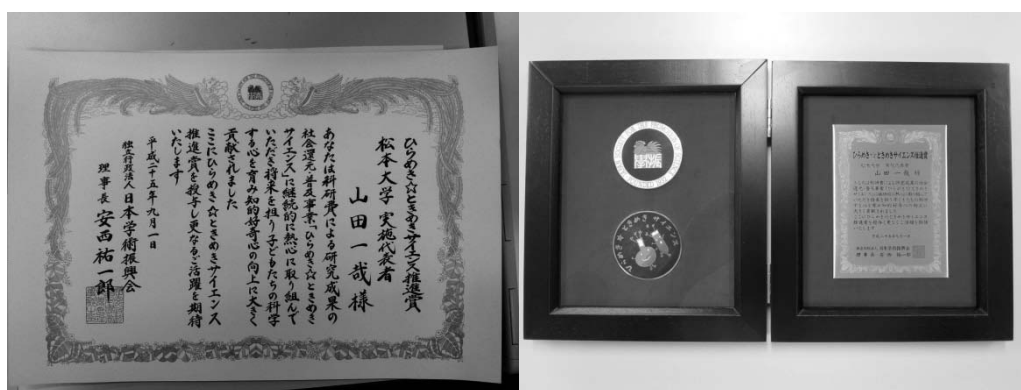 ひらめき☆ときめきサイエンス推進賞
松本大学 実施代表者
山田一哉様
あなたは科研費による研究成果の
社会還元・普及事業「ひらめき☆ときめき
サイエンス」に継続的に熱心に取り組んで
いただき将来を担う子どもたちの科学
する心を育み知的好奇心の向上に大きく
貢献されました
ここにひらめき☆ときめきサイエンス
推進賞を授与し更なるご活躍を期待
いたします
平成二十五年九月一日
独立行政法人日本学術振興会
理事長 安西祐一郎
ひらめき☆ときめき サイエンス
ひらめき☆ときめきサイエンス推進賞
山田一哉 様